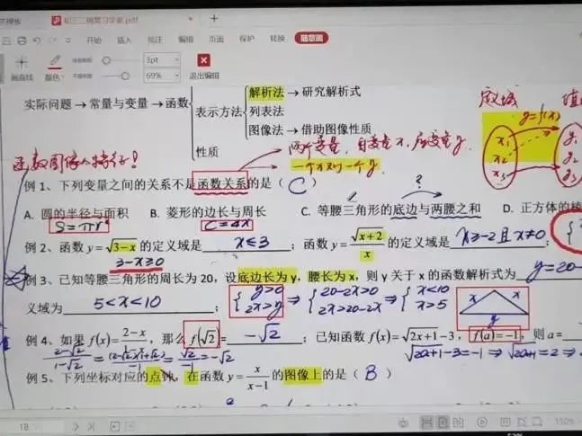 初三二期复习学案.pdf
开始 插入 批注 编辑 页面 保护 转换
画曲线 颜色 1pt 69% 退出编辑
解析法→研究解析式
定义域 值域
实际问题→常量与变量→函数 表示方法 列表法
y=f(x)
图像法→借助图像性质
性质
两个变量,自变量x,应变量y
一个x对一个y
x₁ x₂ x₃ y₁
函数图像の特征!
例 1、下列变量之间的关系不是函数关系的是( C )
?
A. 圆的半径与面积 B. 菱形的边长与周长 C. 等腰三角形的底边与两腰之和 D. 正方体的
S=πr² C=4x
例 2、函数 y=√(3-x) 的定义域是 x≤3 ;函数 y=√(x+2)/x 的定义域是 x≥-2且x≠0;
3-x≥0
例 3、已知等腰三角形的周长为 20,设底边长为 y,腰长为 x,则 y 关于 x 的函数解析式为 y=20-
义域为 5<x<10 ; {y>0 2x>y ⇒ {20-2x>0 2x>20-2x ⇒ {x<10 x>5
x x y
例 4、如果 f(x)=(2-x)/(1-x),那么 f(√2)= -√2 ;已知函数 f(x)=√(2x+1)-3,f(a)=-1,则 a=
√(2a+1)-3=-1 ⇒ √(2a+1)=2 ⇒
例 5、下列坐标对应的点中,在函数 y=x/(x-1) 的图像上的是( B )